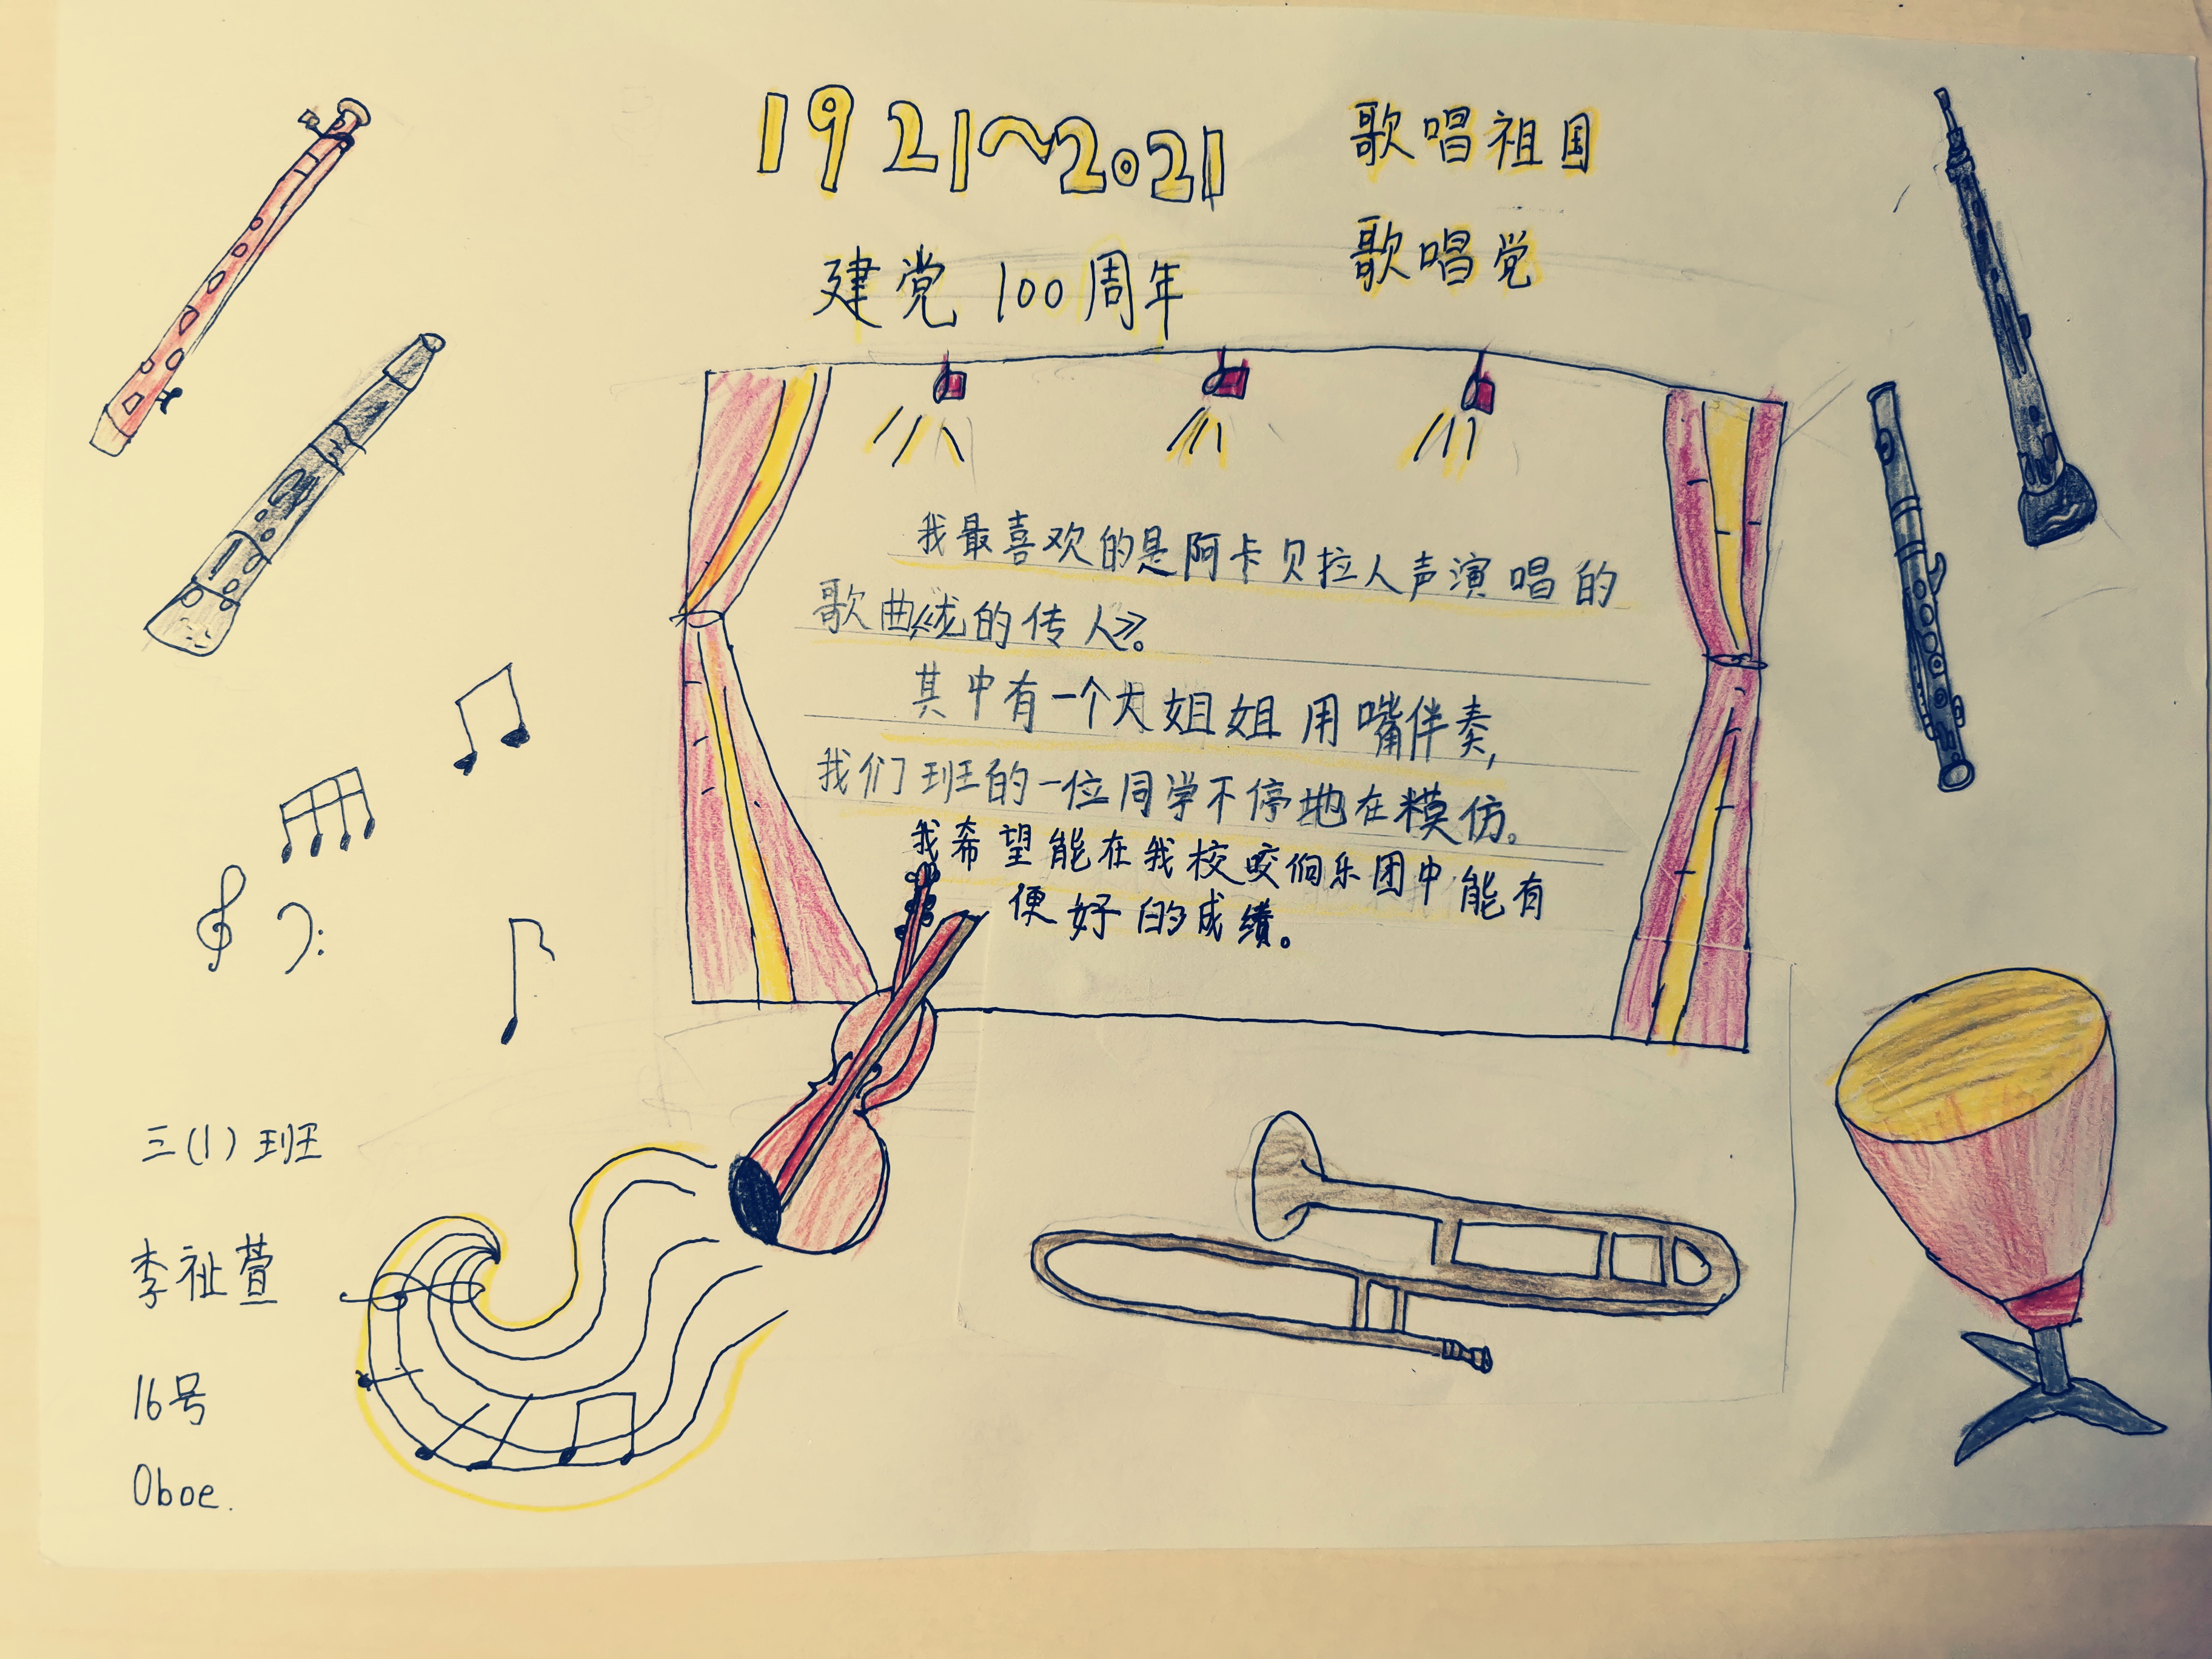 1921~2021
建党100周年
歌唱祖国
歌唱党
我最喜欢的是阿卡贝拉人声演唱的
歌曲《龙的传人》。
其中有一个大姐姐用嘴伴奏,
我们班的一位同学不停地在模仿。
我希望能在我校交响乐团中能有
更好的成绩。
三(1)班
李祉萱
16号
Oboe.